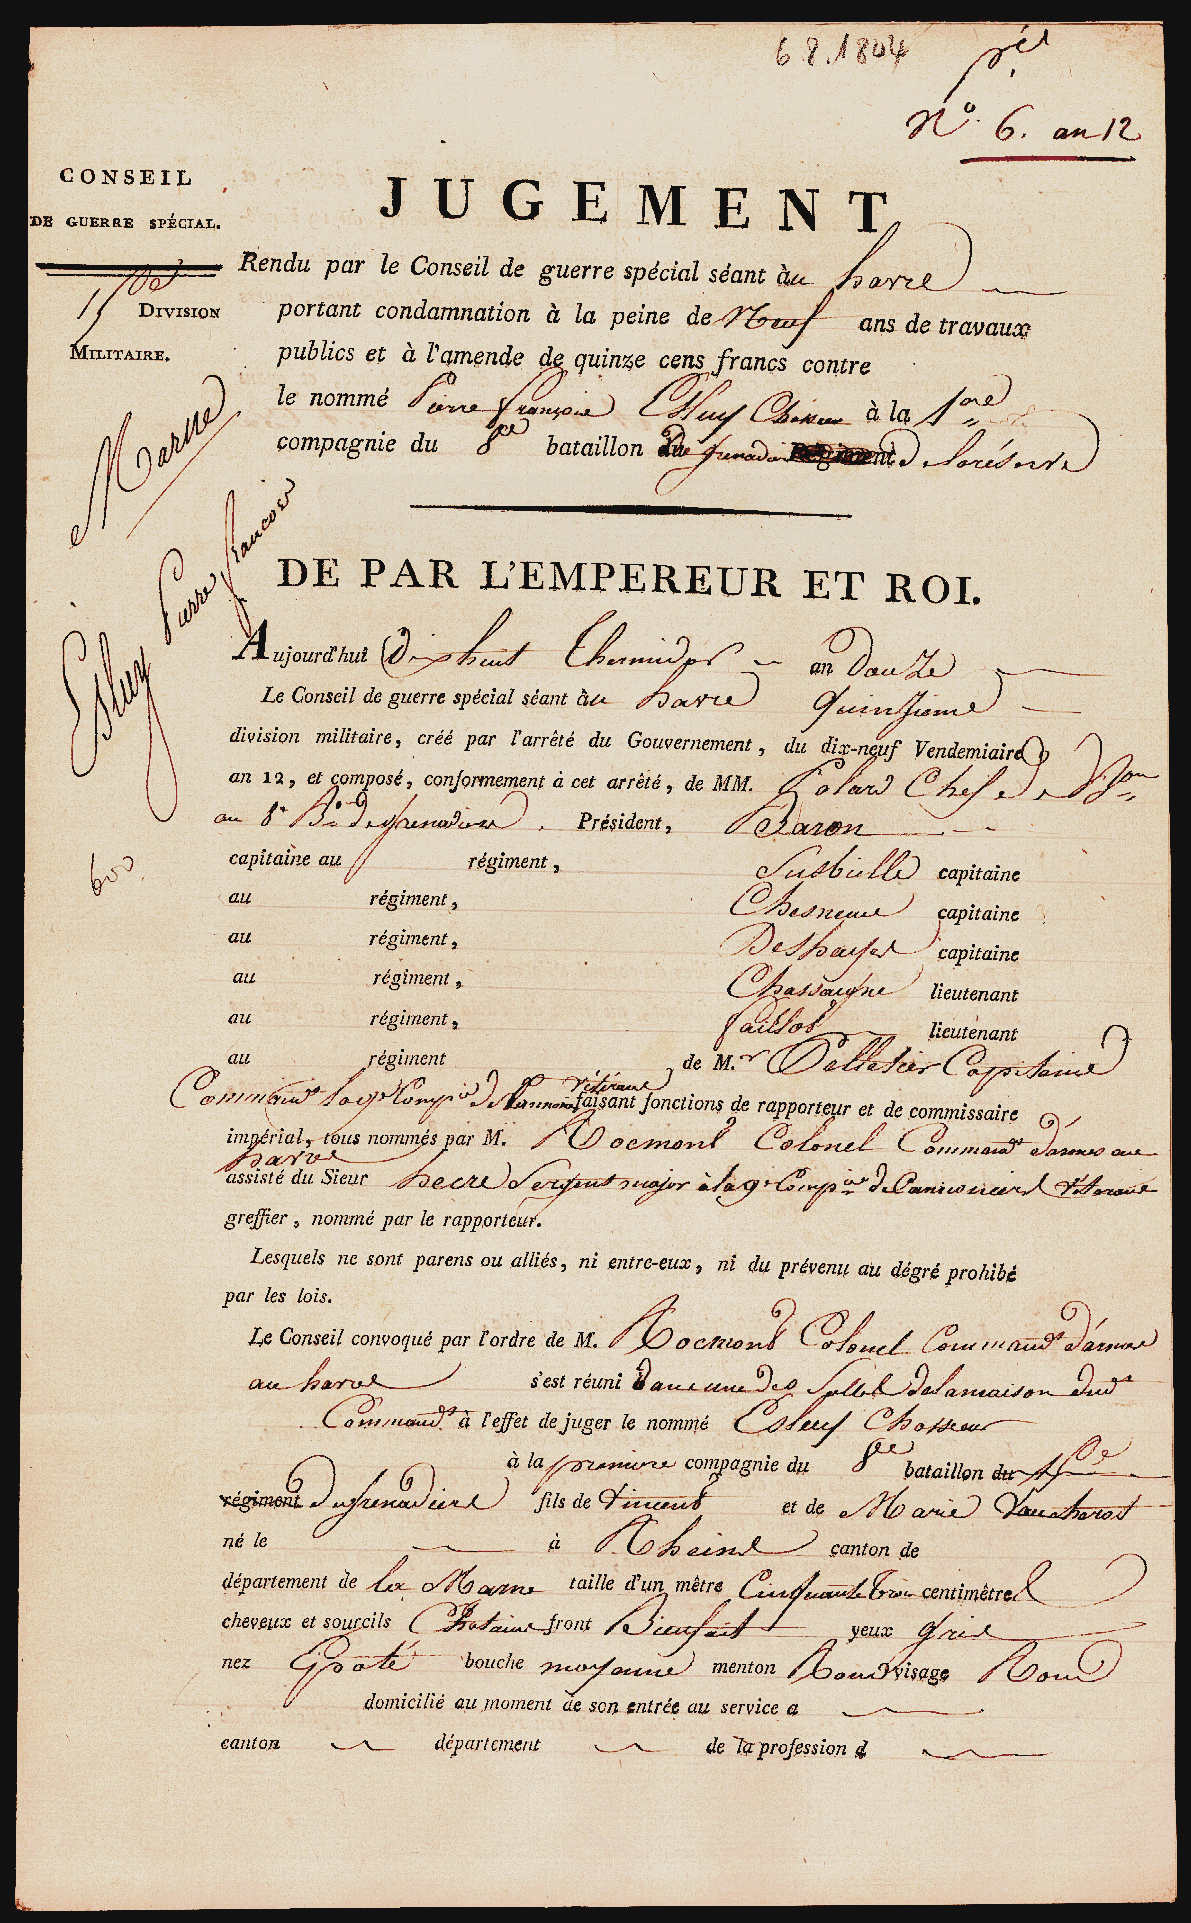 6 8. 1804
N.º 6. an 12
CONSEIL
DE GUERRE SPÉCIAL.
15
DIVISION
MILITAIRE.
JUGEMENT
Rendu par le Conseil de guerre spécial séant au havre
portant condamnation à la peine de Neuf ans de travaux
publics et à l'amende de quinze cens francs contre
le nommé Pierre François Esluy Chasseur à la 1ere
compagnie du 8e bataillon de grenadiers Régiment de la réserve
Marne
Esluy Pierre françois
600
DE PAR L'EMPEREUR ET ROI.
Aujourd'hui Dix huit Thermidor an Douze
Le Conseil de guerre spécial séant au havre quinzieme
division militaire, créé par l'arrêté du Gouvernement, du dix-neuf Vendemiaire
an 12, et composé, conformement à cet arrêté, de MM. Golard Chef de Bon
au 8e Bon de grenadiers Président, Baron
capitaine au régiment, Susbielle capitaine
au régiment, Chesneau capitaine
au régiment, Deshayes capitaine
au régiment, Chassaigne lieutenant
au régiment, lieutenant
au régiment de M.r Pelletier Capitaine
Commandt la 9e Compie de Cannoniers vétérans faisant fonctions de rapporteur et de commissaire
impérial, tous nommés par M. Rocmont Colonel Commandt d'armes au
havre
assisté du Sieur hecre Sergent major à la 9e Compie de Canoniers vétérans
greffier, nommé par le rapporteur.
Lesquels ne sont parens ou alliés, ni entre-eux, ni du prévenu au dégré prohibé
par les lois.
Le Conseil convoqué par l'ordre de M. Rocmont Colonel Commandt d'armes
au havre s'est réuni dans une des Salles de la maison dudt
Commandt à l'effet de juger le nommé Esluy Chasseur
à la premiere compagnie du 8e bataillon du 15e
régiment de grenadiers fils de Vincent et de Marie Vaucherot
né le à Rheims canton de
département de la Marne taille d'un mètre Cinquante trois centimètres
cheveux et sourcils Chatains front Bienfait yeux Gris
nez Epaté bouche moyenne menton Rond visage Rond
domicilié au moment de son entrée au service a
canton département de la profession d